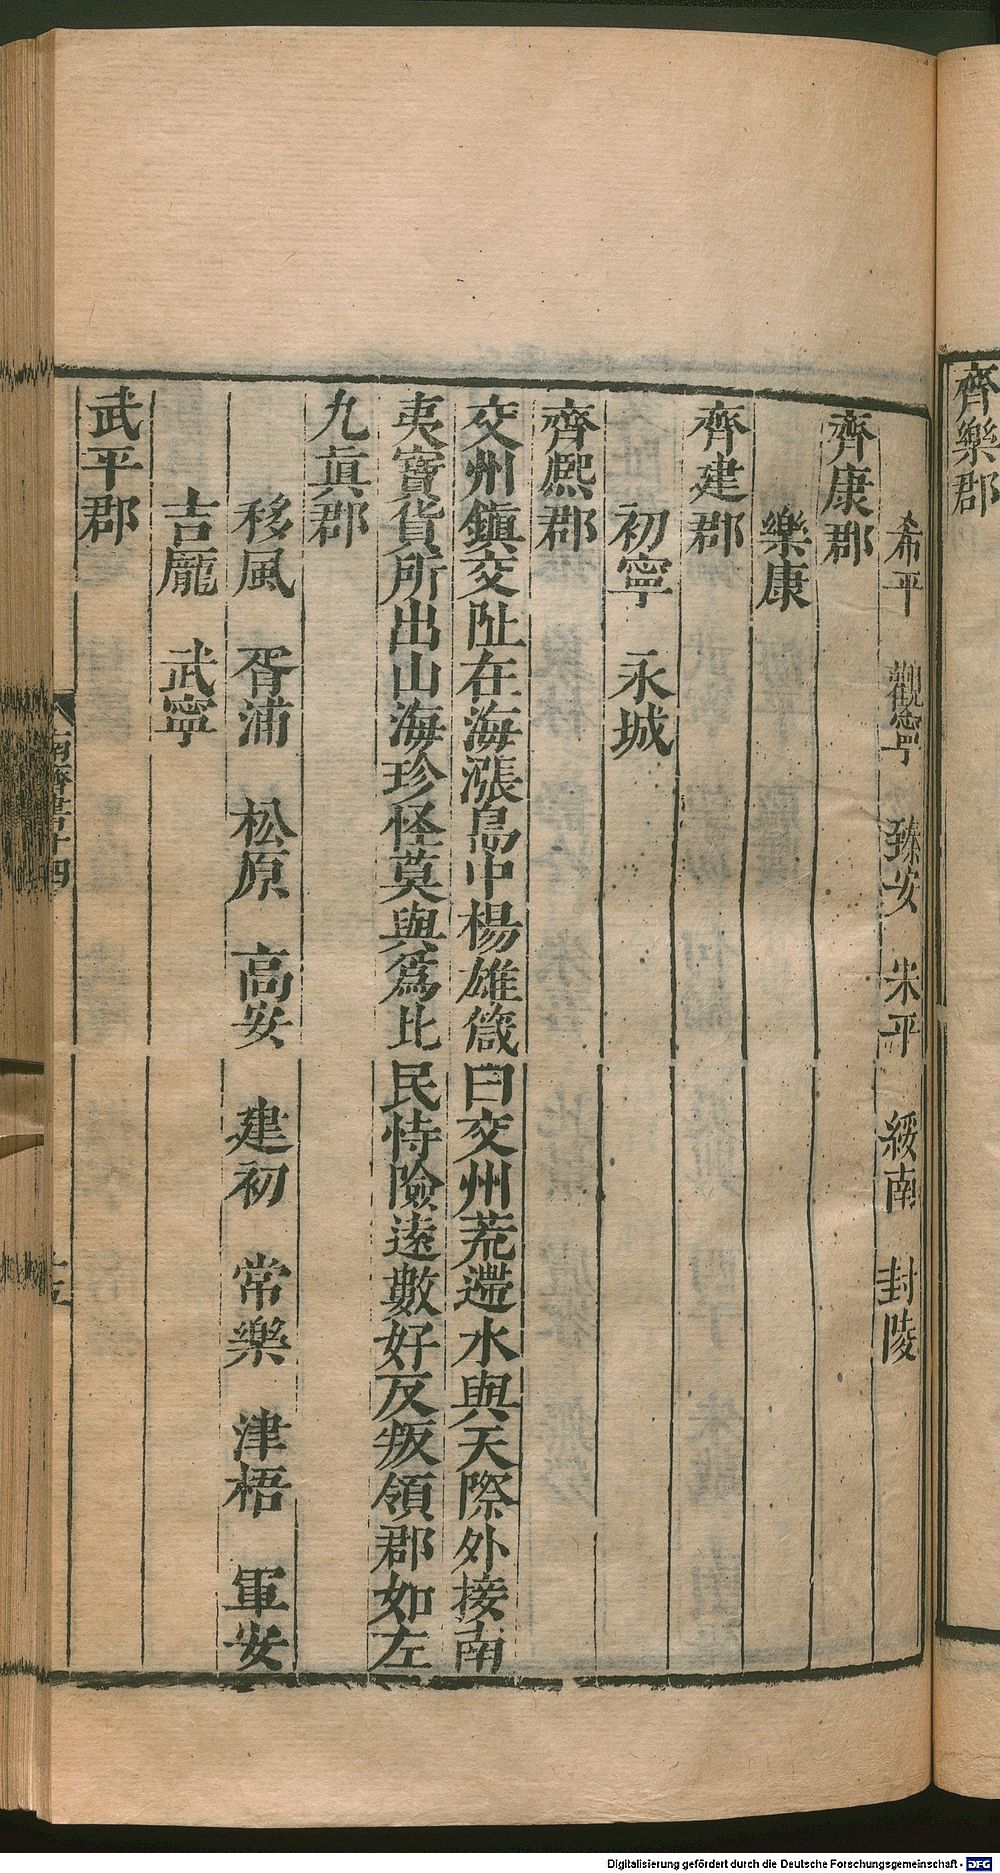 齊樂郡
希平　觀寧　臻安　宋平　綏南　封陵
齊康郡
樂康
齊建郡
初寧　永城
齊熙郡
交州鎮交阯在海漲島中楊雄箴曰交州荒遰水與天際外接南
夷寶貨所出山海珍怪莫與爲比民恃險遠數好反叛領郡如左
九眞郡
移風　胥浦　松原　高安　建初　常樂　津梧　軍安
吉龐　武寧
武平郡
南齊書十四
十五
Digitalisierung gefördert durch die Deutsche Forschungsgemeinschaft - DFG